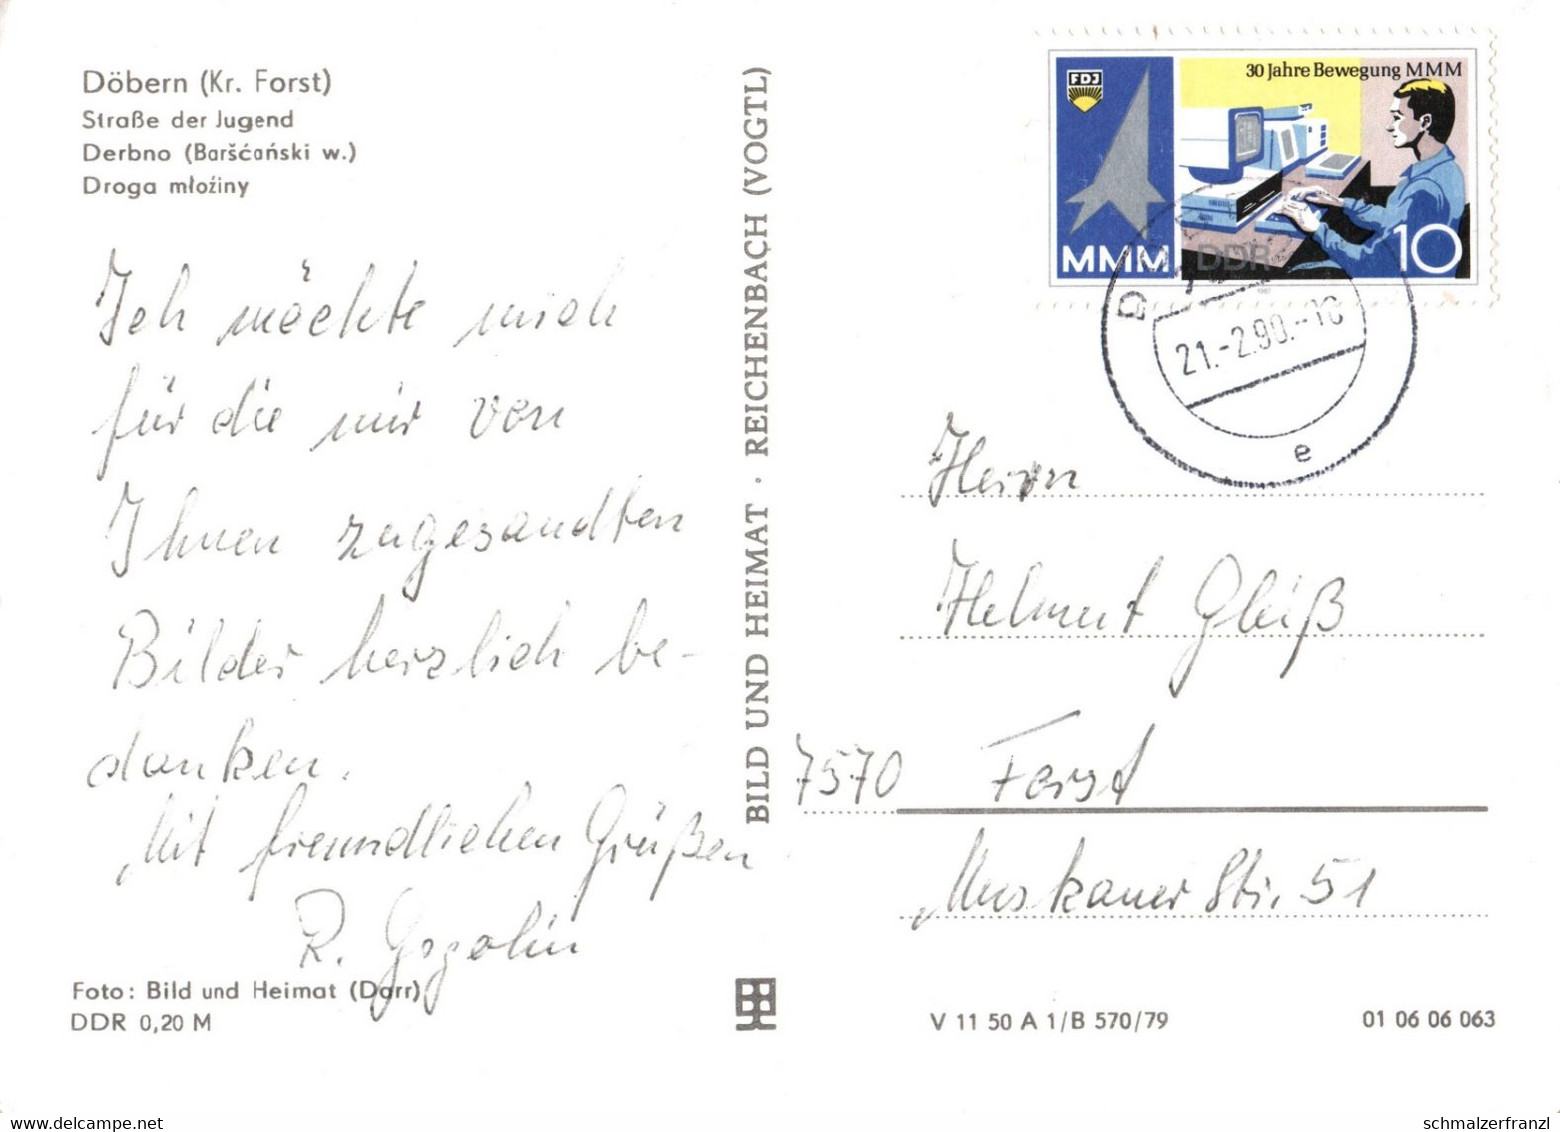 Döbern (Kr. Forst)
Straße der Jugend
Derbno (Baršćański w.)
Droga młoźiny
Ich möchte mich
für die mir von
Ihnen zugesandten
Bilder herzlich be-
danken.
Mit freundlichen Grüßen
R. Gogolin
Foto: Bild und Heimat (Darr)
DDR 0,20 M
BILD UND HEIMAT · REICHENBACH (VOGTL)
30 Jahre Bewegung MMM
FDJ
MMM
DDR
10
21.-2.90.-18
e
Herrn
Helmut Gleiß
7570 Forst
Muskauer Str. 51
V 11 50 A 1/B 570/79
01 06 06 063
schmalzerfranzl
www.delcampe.net